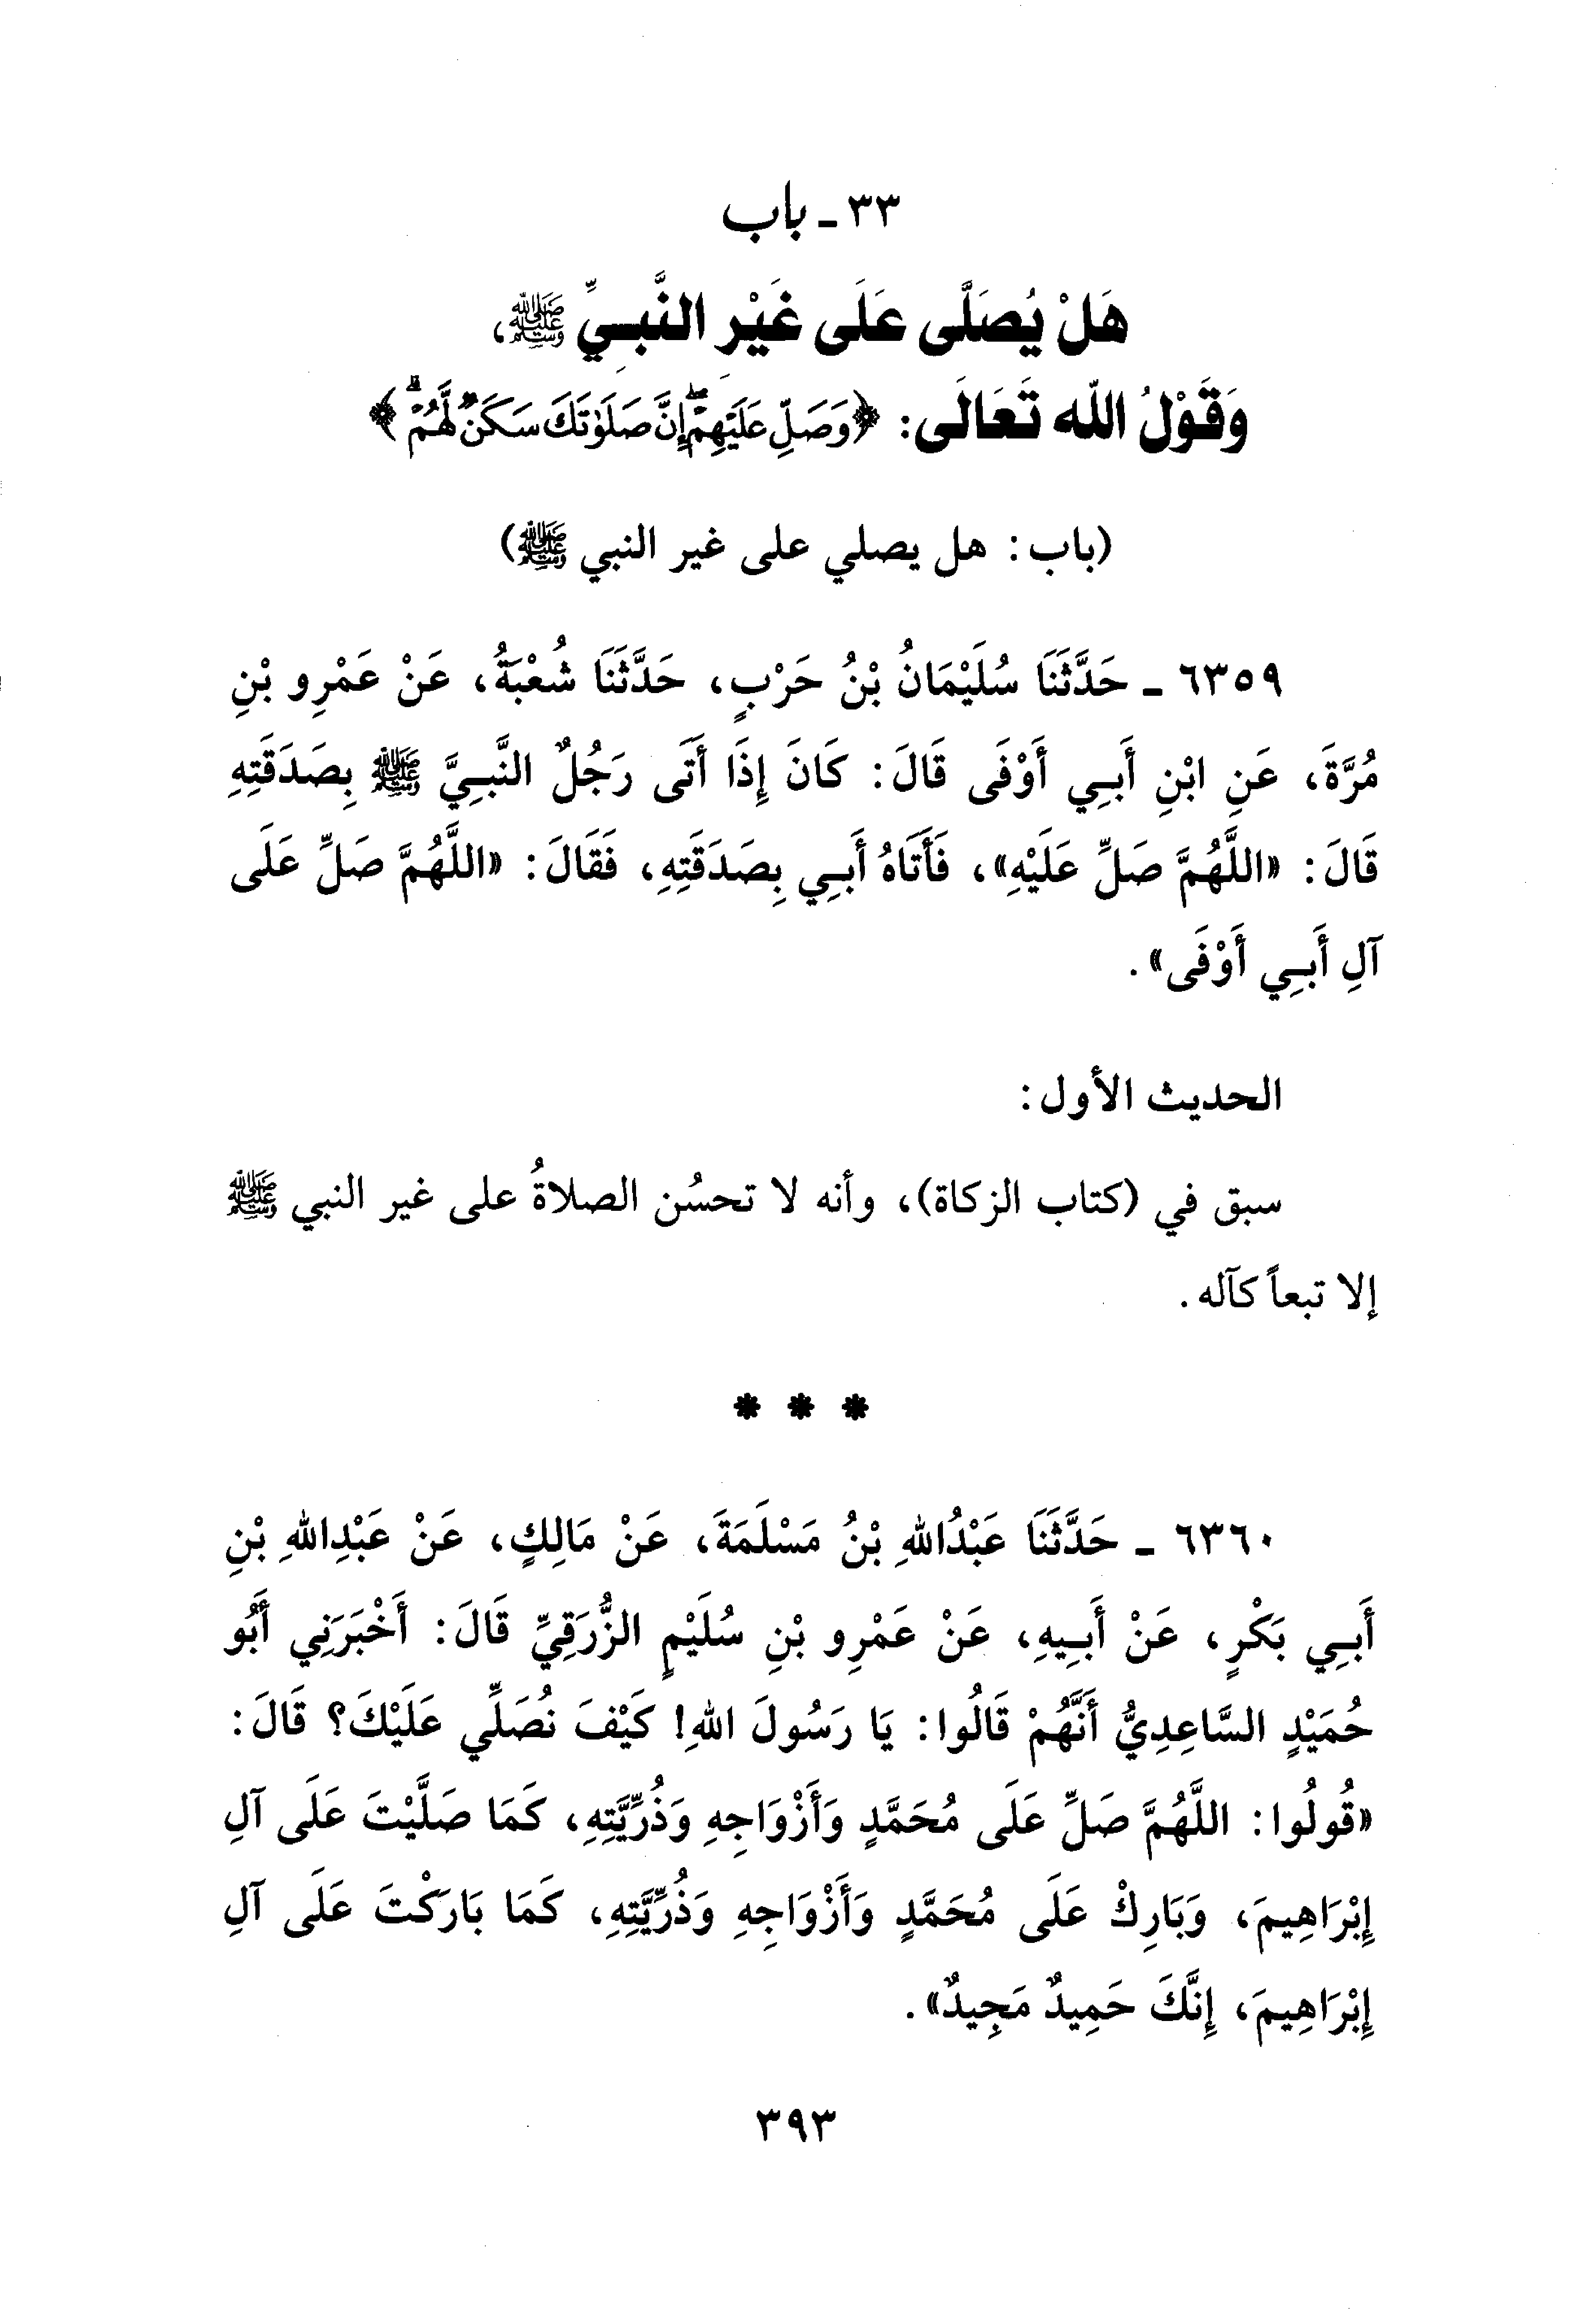 ٣٣ ـ باب
هَلْ يُصَلَّى عَلَى غَيْرِ النَّبِيِّ ﷺ،
وَقَوْلُ اللَّه تَعَالَى: ﴿وَصَلِّ عَلَيْهِمْ إِنَّ صَلَوٰتَكَ سَكَنٌ لَّهُمْ﴾
(باب: هل يصلي على غير النبي ﷺ)
٦٣٥٩ ـ حَدَّثَنَا سُلَيْمَانُ بْنُ حَرْبٍ، حَدَّثَنَا شُعْبَةُ، عَنْ عَمْرِو بْنِ
مُرَّةَ، عَنِ ابْنِ أَبِي أَوْفَى قَالَ: كَانَ إِذَا أَتَى رَجُلٌ النَّبِيَّ ﷺ بِصَدَقَتِهِ
قَالَ: «اللَّهُمَّ صَلِّ عَلَيْهِ»، فَأَتَاهُ أَبِي بِصَدَقَتِهِ، فَقَالَ: «اللَّهُمَّ صَلِّ عَلَى
آلِ أَبِي أَوْفَى».
الحديث الأول:
سبق في (كتاب الزكاة)، وأنه لا تحسُن الصلاةُ على غير النبي ﷺ
إلا تبعاً كآله.
* * *
٦٣٦٠ ـ حَدَّثَنَا عَبْدُاللهِ بْنُ مَسْلَمَةَ، عَنْ مَالِكٍ، عَنْ عَبْدِاللهِ بْنِ
أَبِي بَكْرٍ، عَنْ أَبِيهِ، عَنْ عَمْرِو بْنِ سُلَيْمٍ الزُّرَقِيِّ قَالَ: أَخْبَرَنِي أَبُو
حُمَيْدٍ السَّاعِدِيُّ أَنَّهُمْ قَالُوا: يَا رَسُولَ اللهِ! كَيْفَ نُصَلِّي عَلَيْكَ؟ قَالَ:
«قُولُوا: اللَّهُمَّ صَلِّ عَلَى مُحَمَّدٍ وَأَزْوَاجِهِ وَذُرِّيَّتِهِ، كَمَا صَلَّيْتَ عَلَى آلِ
إِبْرَاهِيمَ، وَبَارِكْ عَلَى مُحَمَّدٍ وَأَزْوَاجِهِ وَذُرِّيَّتِهِ، كَمَا بَارَكْتَ عَلَى آلِ
إِبْرَاهِيمَ، إِنَّكَ حَمِيدٌ مَجِيدٌ».
٣٩٣